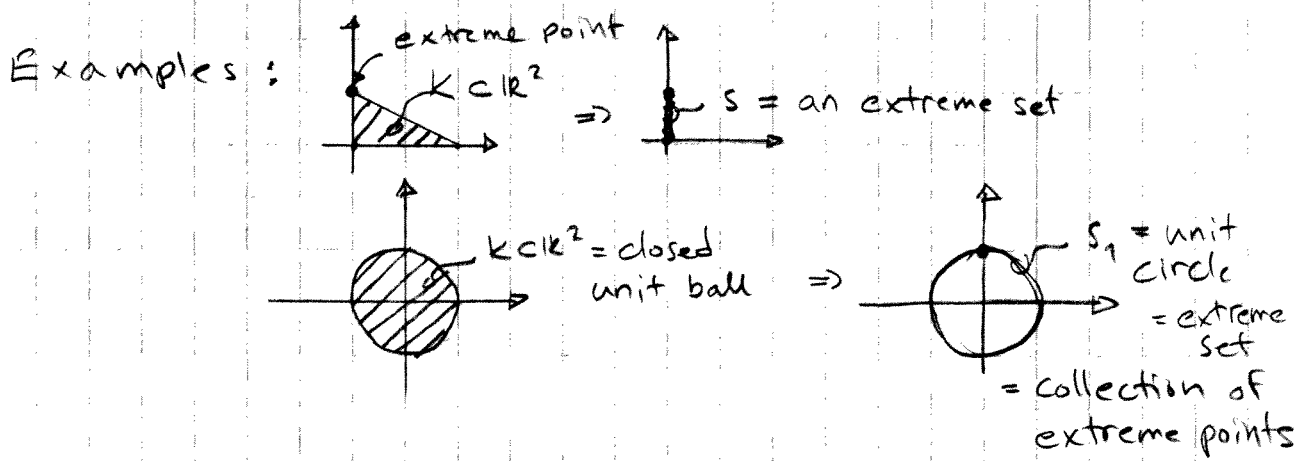 extreme point
Examples:
K ⊂ ℝ²
⇒ S = an extreme set
K ⊂ ℝ² = closed
unit ball
⇒
S₁ = unit
circle
= extreme
set
= collection of
extreme points